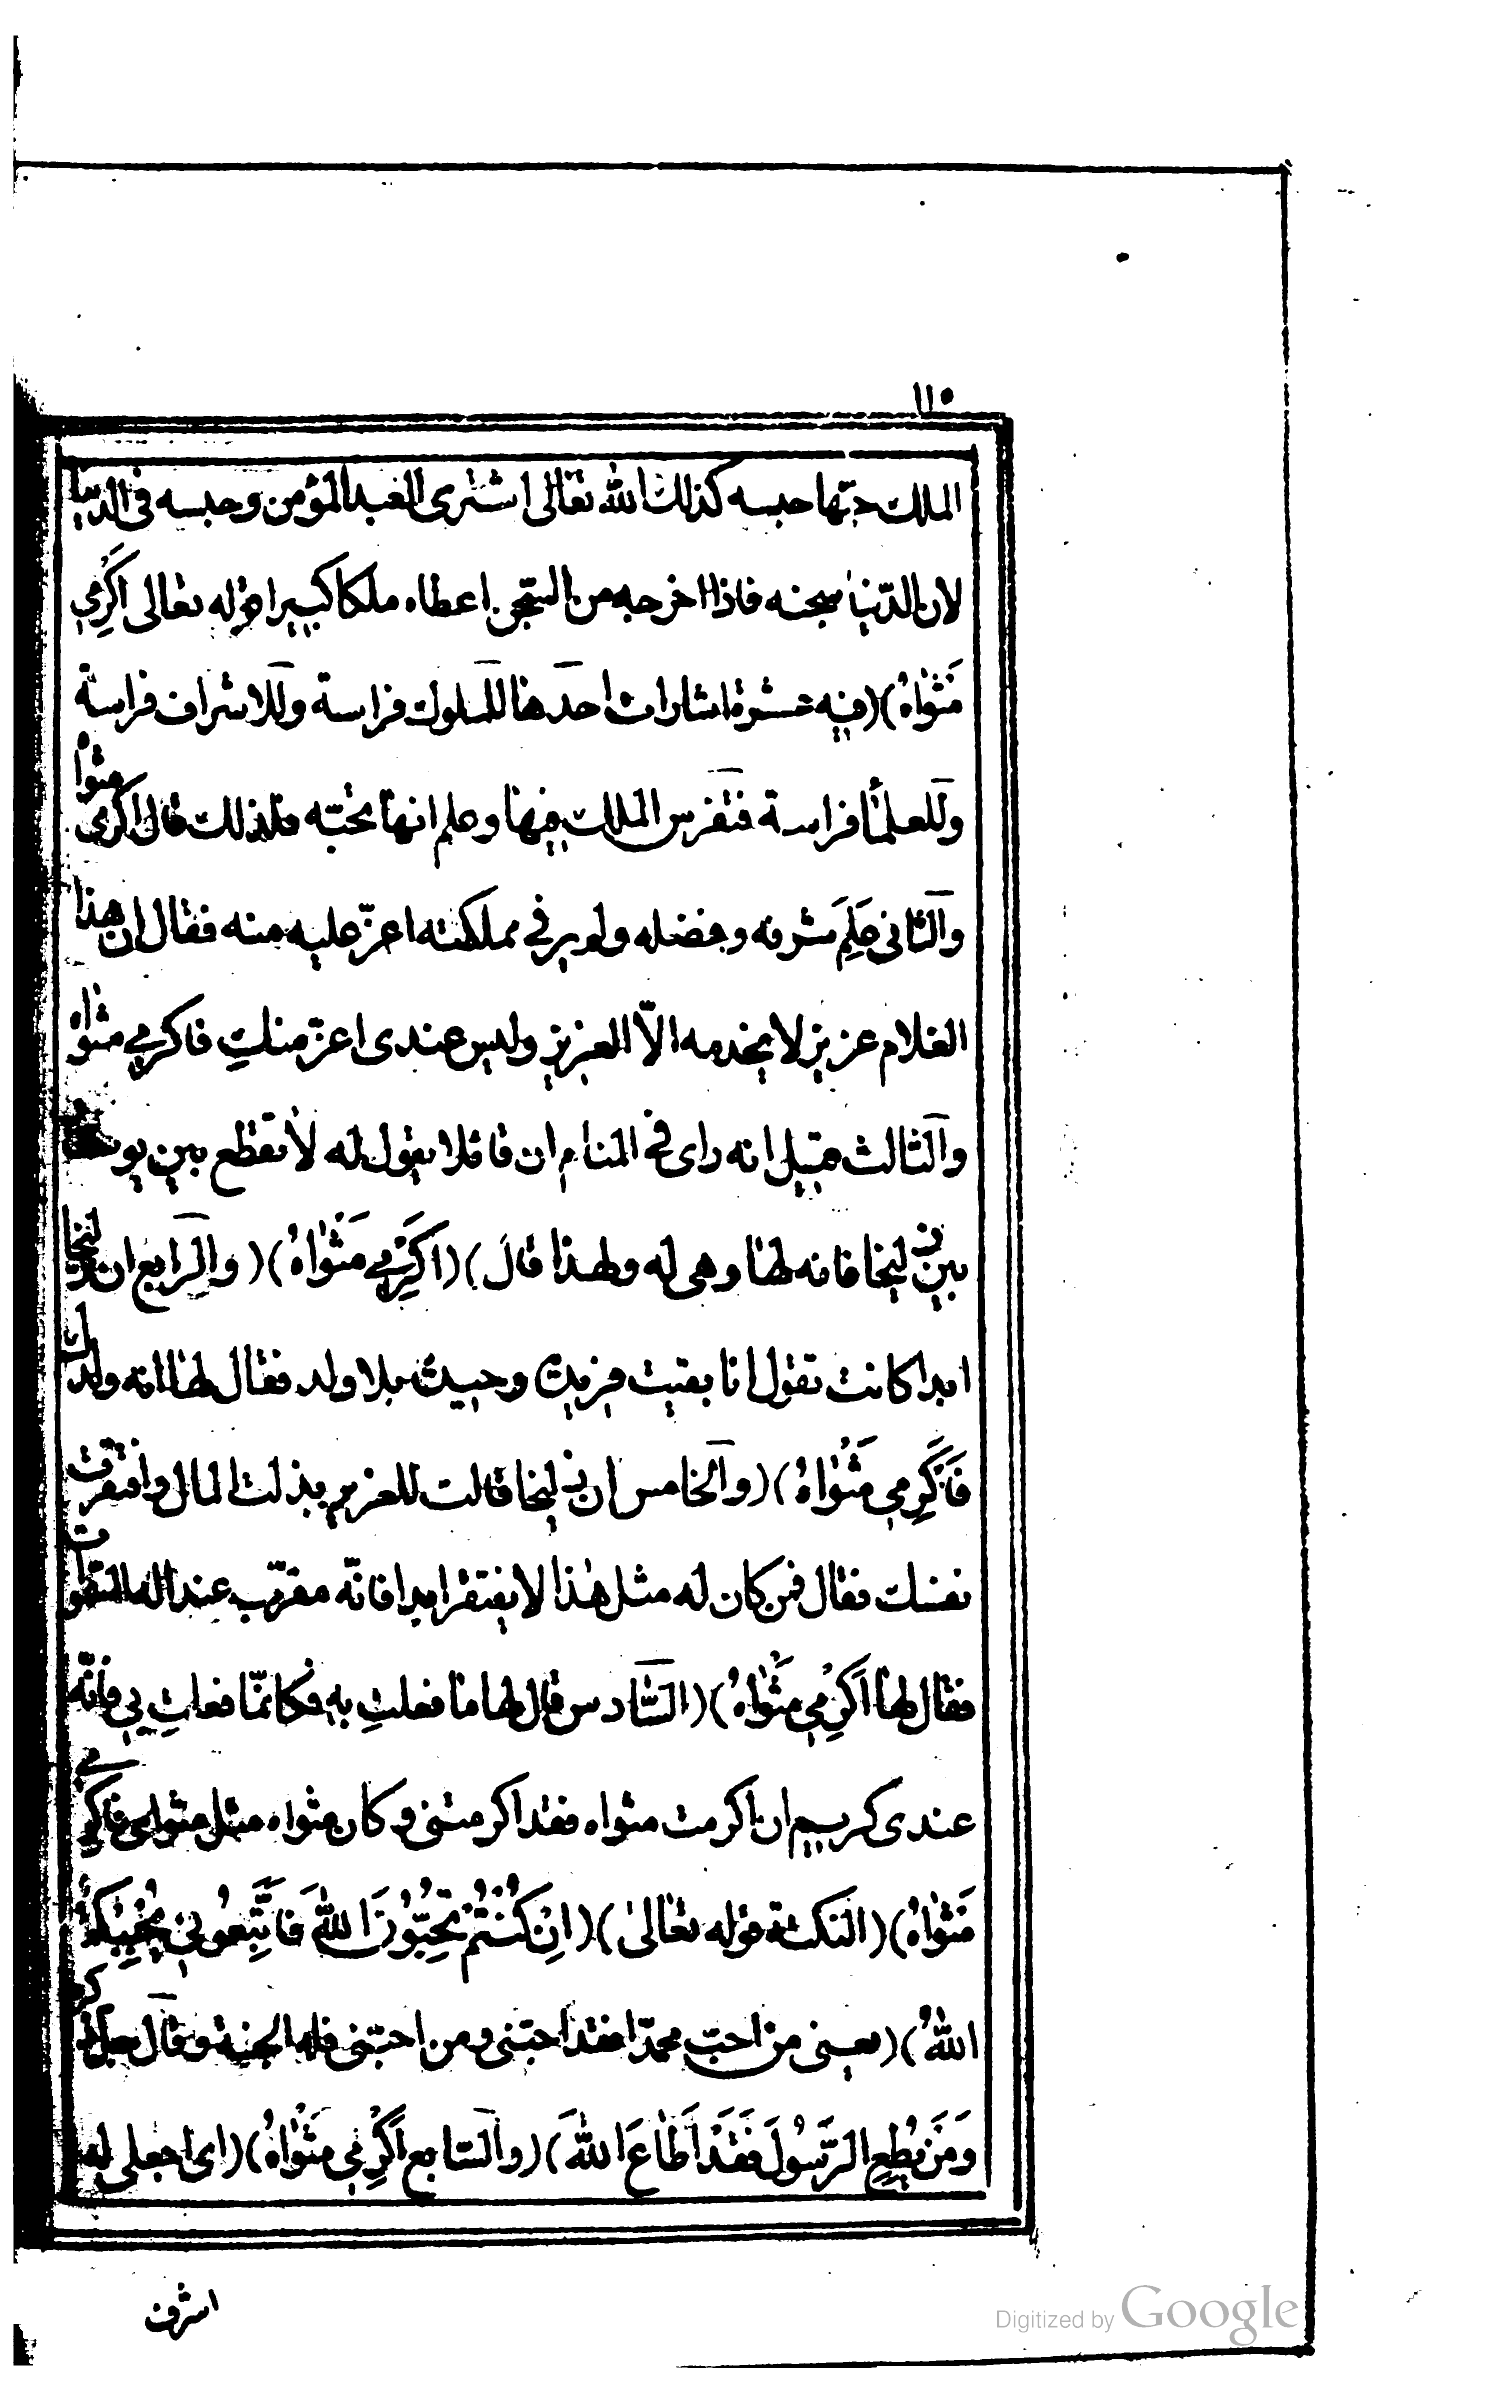 ١١٠
الملك حبّها حبسه كذلك الله تعالى اشترى العبد المؤمن وحبسه فى الدنيا
لان الدّنيا سجنه فاذا اخرجه من السّجن اعطاه ملكا كبيرا قوله تعالى اَكْرِمِي
مَثْوٰاهُ)(فيه عشرة اشارات احدها للملوك فراسة وللاشراف فراسة
وللعلمآ فراسة فتفرس الملك فيها وعلم انها تحبّه فلذلك قال اكرمى مثواه
والثانى عَلِمَ شرفه وفضله ولم ير فى مملكته اعزّ عليه منه فقال ان هذا
الغلام عزيز لا يخدمه الّا العزيز وليس عندى اعزّ منكِ فاكرمي مثواه
والثالث قيل انه راى فى المنام ان قائلا يقول له لا تقطع بين يوسف
بين زليخا فانه لها وهى له ولهذا قالَ)(اَكْرِمِي مَثْوٰاهُ)(والرابع ان زليخا
ابدا كانت تقول انا بقيت فريدة وحيدة بلا ولد فقال لها انه ولدك
فَاَكْرِمِي مَثْوٰاهُ)(والخامس ان زليخا قالت للعزيز بذلت المال وافتقرت
نفسك فقال فمن كان له مثل هٰذا لا يفتقر ابدا فانّه مقرّب عند اله السّموات
فقال لها اَكْرِمِي مَثْوٰاهُ)(السّادس قال لها ما فعلتِ به فكانّما فعلتِ بي فانّه
عندى كريم ان اكرمت مثواه فقد اكرمتنى وكان مثواه مثل مثواى فاكرمي
مَثْوٰاهُ)(النكتة قوله تعالىٰ)(اِنْ كُنْتُمْ تُحِبُّونَ اللّٰهَ فَاتَّبِعُونِي يُحْبِبْكُمُ
اللّٰهُ)(يعنى من احبّ محمّدا فقد احبّنى ومن احبّنى فله الجنة وقال جل ذكره
وَمَنْ يُطِعِ الرَّسُولَ فَقَدْ اَطَاعَ اللّٰهَ)(والسّابع اَكْرِمِي مَثْوٰاهُ)(اى اجعلى له
اشرف
Digitized by Google